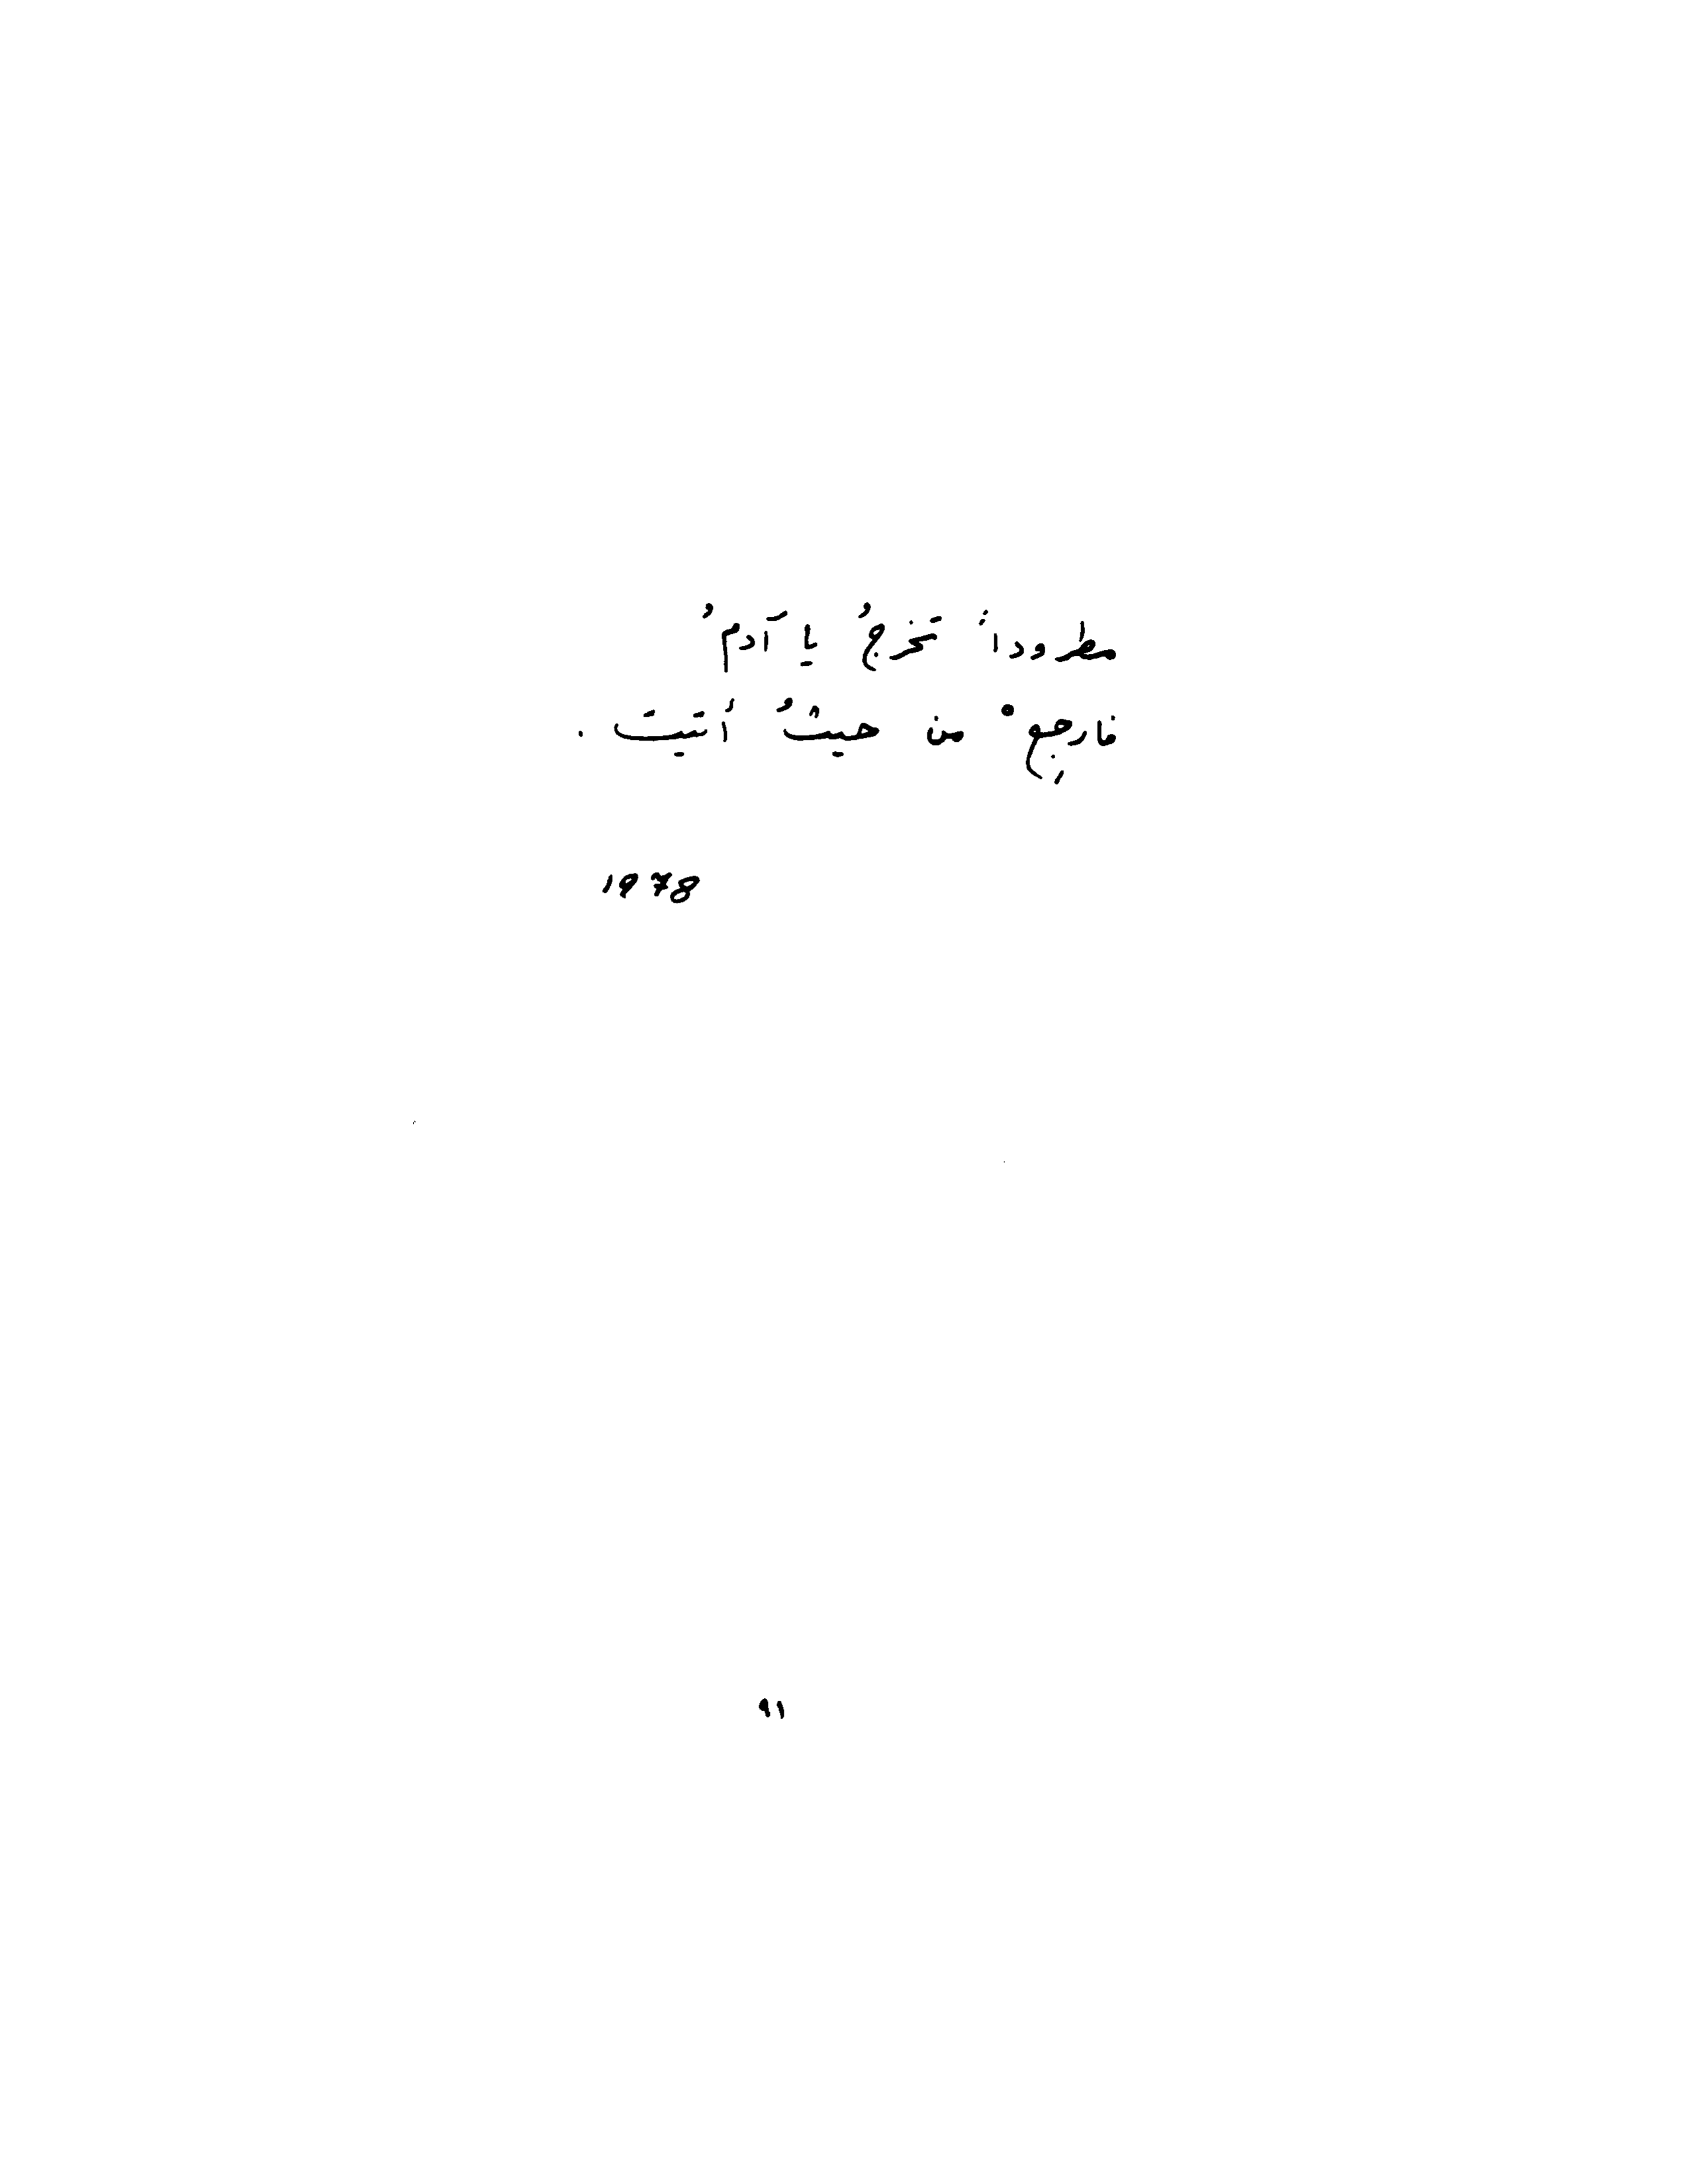 مطروداً تخرجُ يا آدمُ
فارجِعْ من حيثُ أتيتَ .
1978
٩١